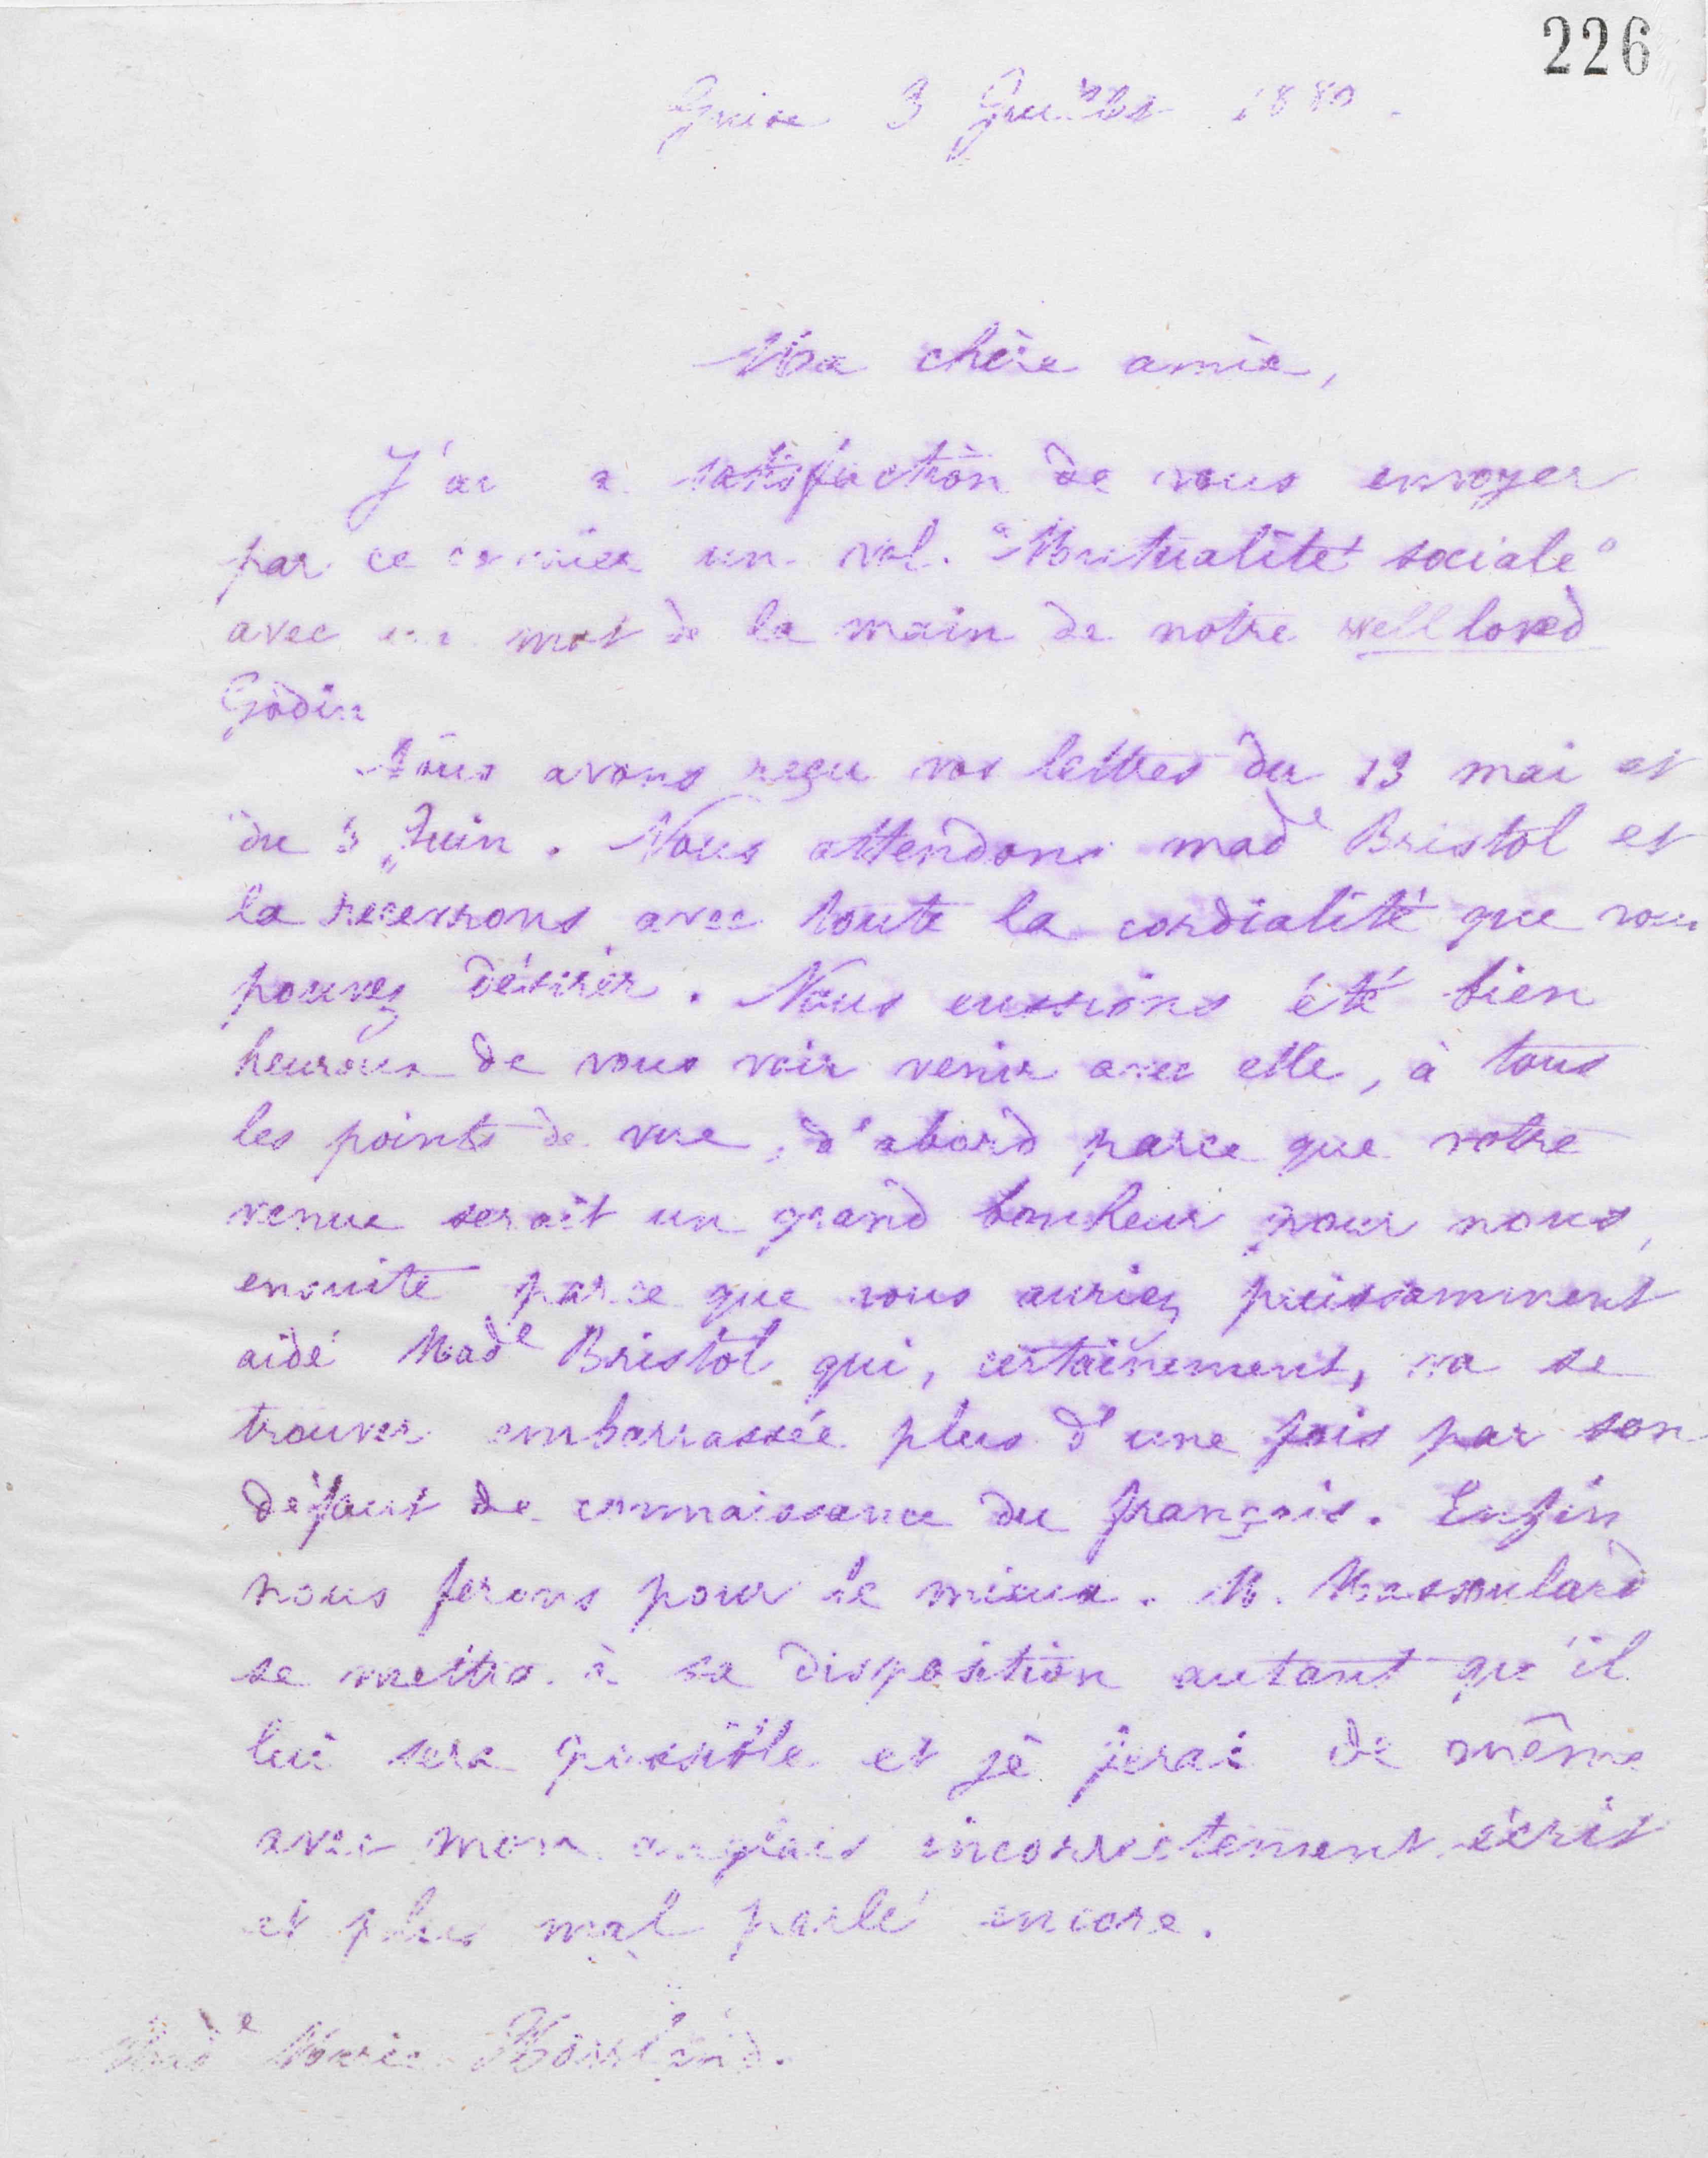 226
Guise 3 Juillet 1880.
Ma chère amie,
J'ai a satisfaction de vous envoyer
par ce courrier un vol. "Mutualité sociale"
avec un mot de la main de notre well loved
Godin
Nous avons reçu vos lettres du 13 mai et
du 3 Juin. Nous attendons mad^e Bristol et
la recevrons avec toute la cordialité que vous
pouvez désirer. Nous eussions été bien
heureux de vous voir venir avec elle, à tous
les points de vue, d'abord parce que votre
venue serait un grand bonheur pour nous,
ensuite parce que vous auriez puissamment
aidé Mad^e Bristol qui, certainement, va se
trouver embarrassée plus d'une fois par son
défaut de connaissance du français. Enfin
nous ferons pour le mieux. M. Massoulard
se mettra à sa disposition autant qu'il
lui sera possible et je ferai de même
avec mon anglais incorrectement écrit
et plus mal parlé encore.
Mad^e Marie Howland.